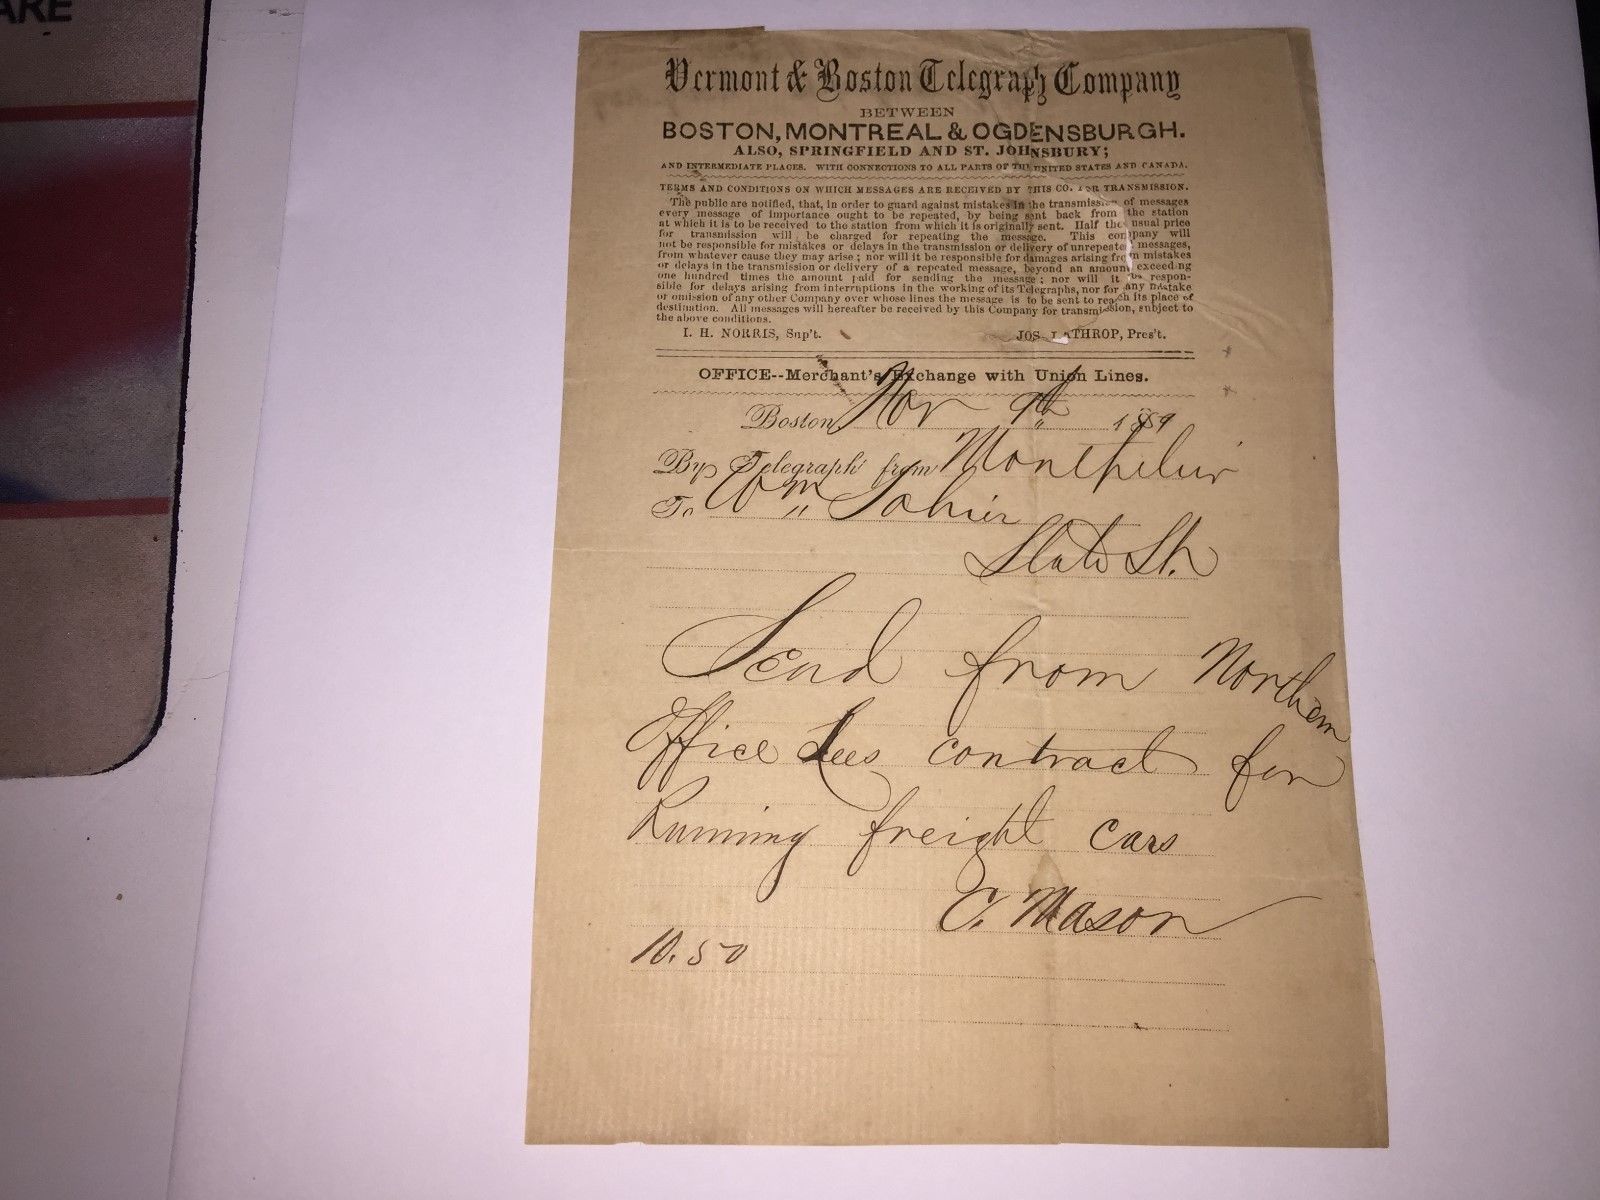 ARE
Vermont & Boston Telegraph Company
BETWEEN
BOSTON, MONTREAL & OGDENSBURGH.
ALSO, SPRINGFIELD AND ST. JOHNSBURY;
AND INTERMEDIATE PLACES. WITH CONNECTIONS TO ALL PARTS OF THE UNITED STATES AND CANADA.
TERMS AND CONDITIONS ON WHICH MESSAGES ARE RECEIVED BY THIS CO. FOR TRANSMISSION.
The public are notified, that, in order to guard against mistakes in the transmission of messages
every message of importance ought to be repeated, by being sent back from the station
at which it is to be received to the station from which it is originally sent. Half the usual price
for transmission will be charged for repeating the message. This company will
not be responsible for mistakes or delays in the transmission or delivery of unrepeated messages,
from whatever cause they may arise; nor will it be responsible for damages arising from mistakes
or delays in the transmission or delivery of a repeated message, beyond an amount exceeding
one hundred times the amount paid for sending the message; nor will it be respon-
sible for delays arising from interruptions in the working of its Telegraphs, nor for any mistake
or omission of any other Company over whose lines the message is to be sent to reach its place of
destination. All messages will hereafter be received by this Company for transmission, subject to
the above conditions.
I. H. NORRIS, Sup't. JOS. LATHROP, Pres't.
OFFICE--Merchant's Exchange with Union Lines.
Boston, Nov 9th 1859
By Telegraph from Montpelier
To Wm Sohier
State St.
Send from Northern
Office Lees contract for
Running freight cars
C. Mason
10.50